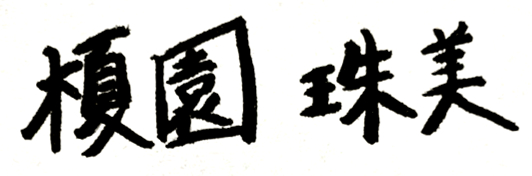 榎園 珠美